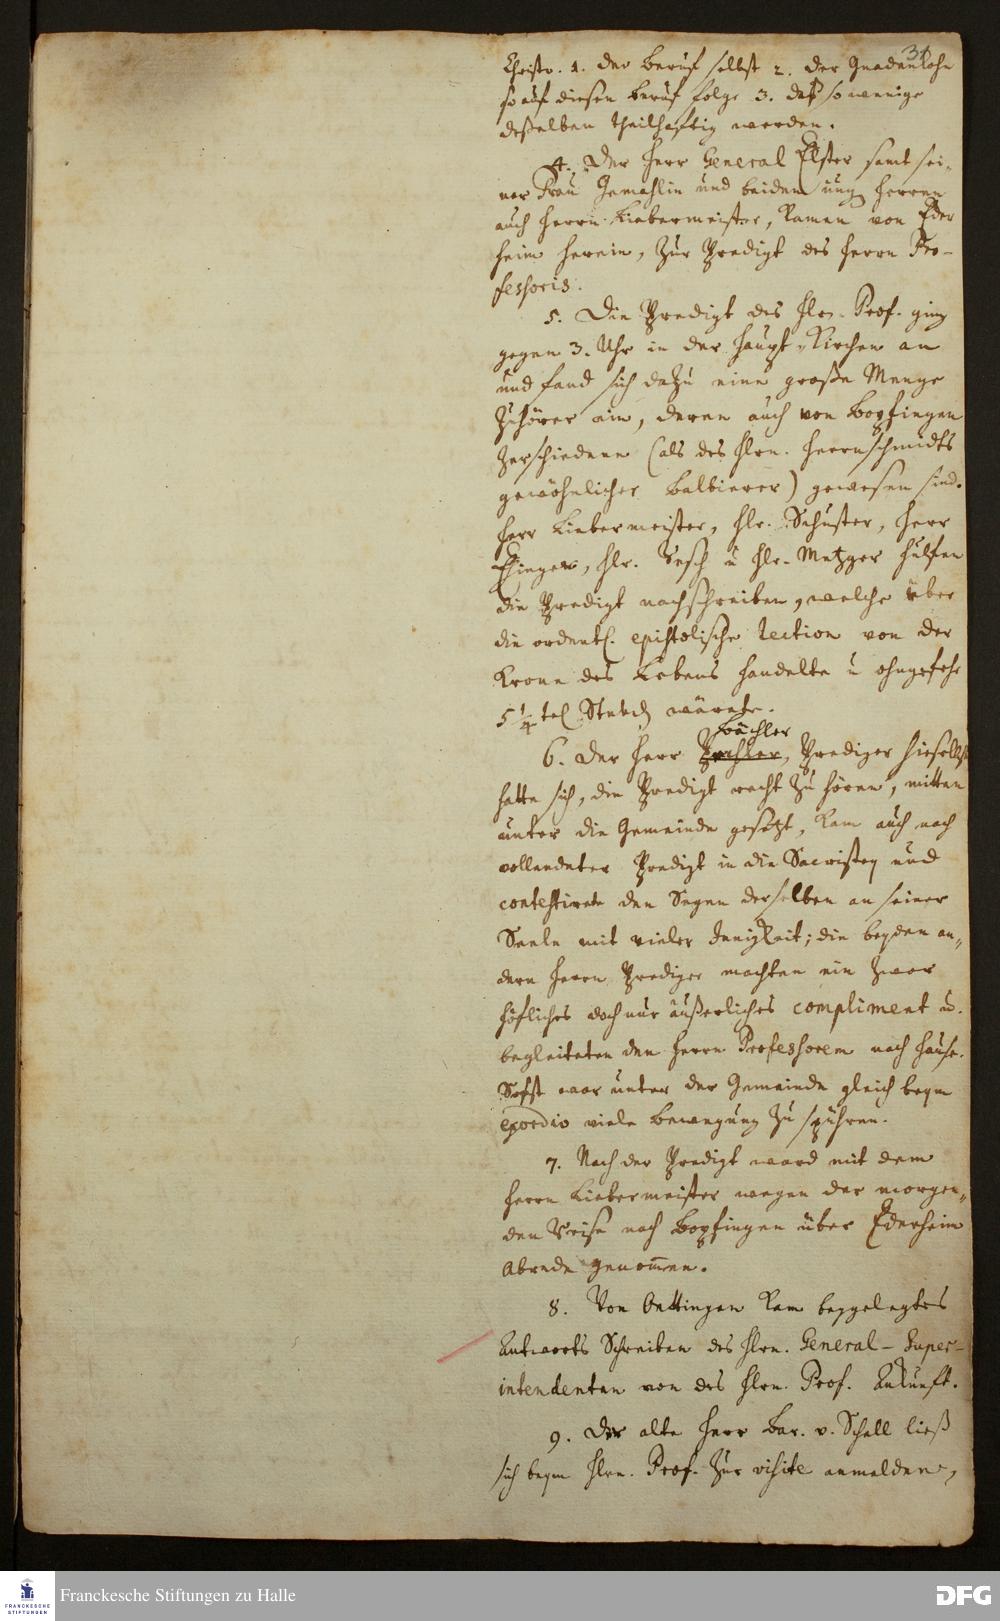 34
Christo. 1. der Beruf selbst 2. der Gnadenlohn
so auf diesen Beruf folge 3. daß so wenige
deßelben theilhafftig werden.
4. Der Herr General Elster samt sei-
ner Frau Gemahlin und beiden jung Herren
auch Herrn Liebermeister, kamen von Eder
heim herein, zur Predigt des Herrn Pro-
fessoris.
5. Die Predigt des Hrn. Prof. ging
gegen 3. Uhr in der Haupt-Kirchen an
und fand sich dazu eine große Menge
Zuhörer ein, deren auch von Bopfingen
verschiedene (als des Hrn. Herrnschmidts
gewöhnlicher Balbierer) gewesen sind.
Herr Liebermeister, Hr. Schuster, Herr
Hr. u Hr. Metzger hulfen
die Predigt nachschreiben, welche über
die ordentl. epistolische lection von der
Krone des Lebens handelte u ohngefehr
5/4tel Stund währete.
Bächler
6. Der Herr Prediger hieselbst
hatte sich, die Predigt recht zu hören, mitten
unter die Gemeinde gesetzt, kam auch nach
vollendeter Predigt in die Sacristey und
contestirete den Segen derselben an seiner
Seele mit vieler Innigkeit; die beyden an-
dern Herrn Prediger machten ein zwar
höfliches doch nur äußerliches compliment u.
begleiteten den Herrn Professorem nach Hause.
Sonst war unter der Gemeinde gleich beym
exordio viele Bewegung zu spühren.
7. Nach der Predigt ward mit dem
Herrn Liebermeister wegen der morgen-
den Reise nach Bopfingen über Ederheim
Abrede genommen.
8. Von Oettingen kam beygelegtes
Antworts Schreiben des Hrn. General-Super-
intendenten von des Hrn. Prof. Ankunft.
9. Der alte Herr Bar. v. Schell ließ
sich beym Hrn. Prof. zur visite anmelden,
FRANCKESCHE
STIFTUNGEN
Franckesche Stiftungen zu Halle
DFG